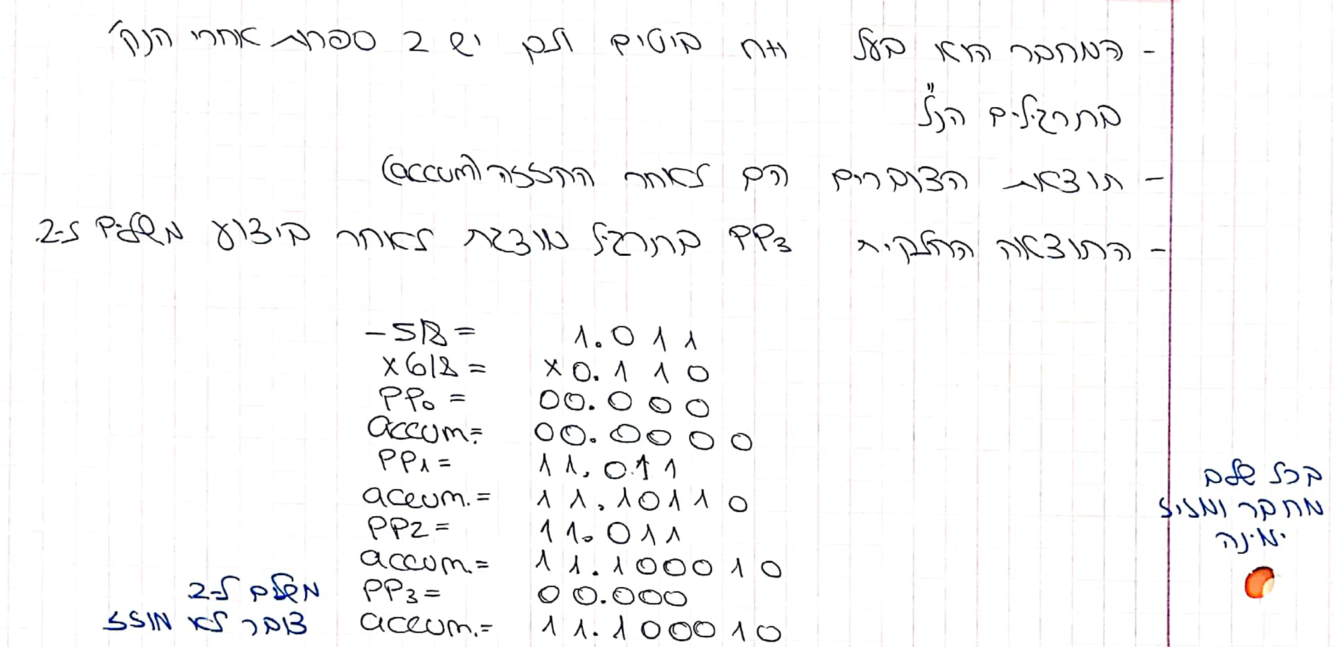 - המחבר הוא בעל n+1 ביטים ולכן יש 2 ספרות אחרי הנק'
בתרגילים הנ"ל
- תוצאות הצוברים הם לאחר ההזזה (accum)
- התוצאה החלקית PP3 בתרגיל מוצגת לאחר ביצוע משלים ל-2.
-5/8 = 1.011
x6/8 = x0.110
PP0 = 00.000
accum= 00.0000
PP1 = 11.011
accum.= 11.10110
PP2 = 11.011
accum.= 11.100010
PP3 = 00.000
accum.= 11.100010
משלים ל-2
צובר לא מוזז
בכל שלב
מחבר ומזיז
ימינה